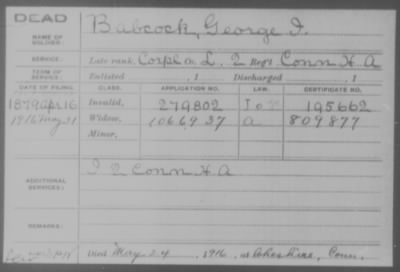 DEAD
NAME OF SOLDIER:
Babcock, George I.
SERVICE:
Late rank, Corpl Co. L. 2 Reg't Conn H A
TERM OF SERVICE:
Enlisted , 1 Discharged , 1
DATE OF FILING. CLASS. APPLICATION NO. LAW. CERTIFICATE NO.
1879 Apr 16 Invalid, 279802 195662
1916 Aug 31 Widow, 1066937 a 809877
Minor,
ADDITIONAL SERVICES:
I 2 Conn H A
REMARKS:
Died May 24, 1916, at Cheshire, Conn.